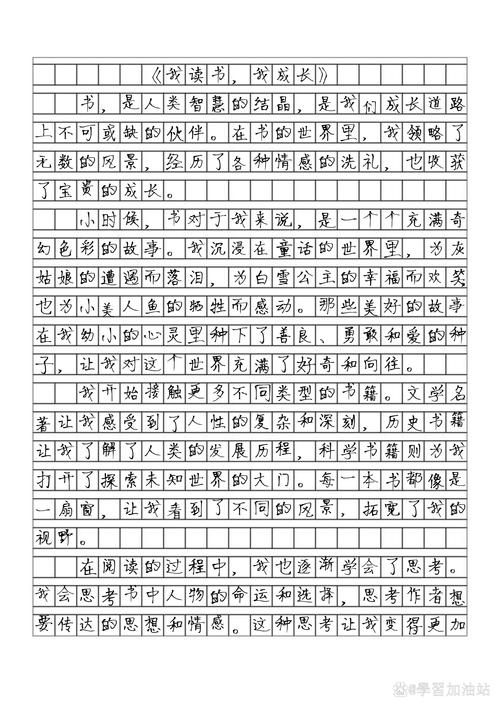 《我读书，我成长》
书，是人类智慧的结晶，是我们成长道路
上不可或缺的伙伴。在书的世界里，我领略了
无数的风景，经历了各种情感的洗礼，也收获
了宝贵的成长。
小时候，书对于我来说，是一个个充满奇
幻色彩的故事。我沉浸在童话的世界里，为灰
姑娘的遭遇而落泪，为白雪公主的幸福而欢笑，
也为小美人鱼的牺牲而感动。那些美好的故事
在我幼小的心灵里种下了善良、勇敢和爱的种
子，让我对这个世界充满了好奇和向往。
我开始接触更多不同类型的书籍。文学名
著让我感受到了人性的复杂和深刻，历史书籍
让我了解了人类的发展历程，科学书籍则为我
打开了探索未知世界的大门。每一本书都像是
一扇窗，让我看到了不同的风景，拓宽了我的
视野。
在阅读的过程中，我也逐渐学会了思考。
我会思考书中人物的命运和选择，思考作者想
要传达的思想和情感。这种思考让我变得更加
@學習加油站